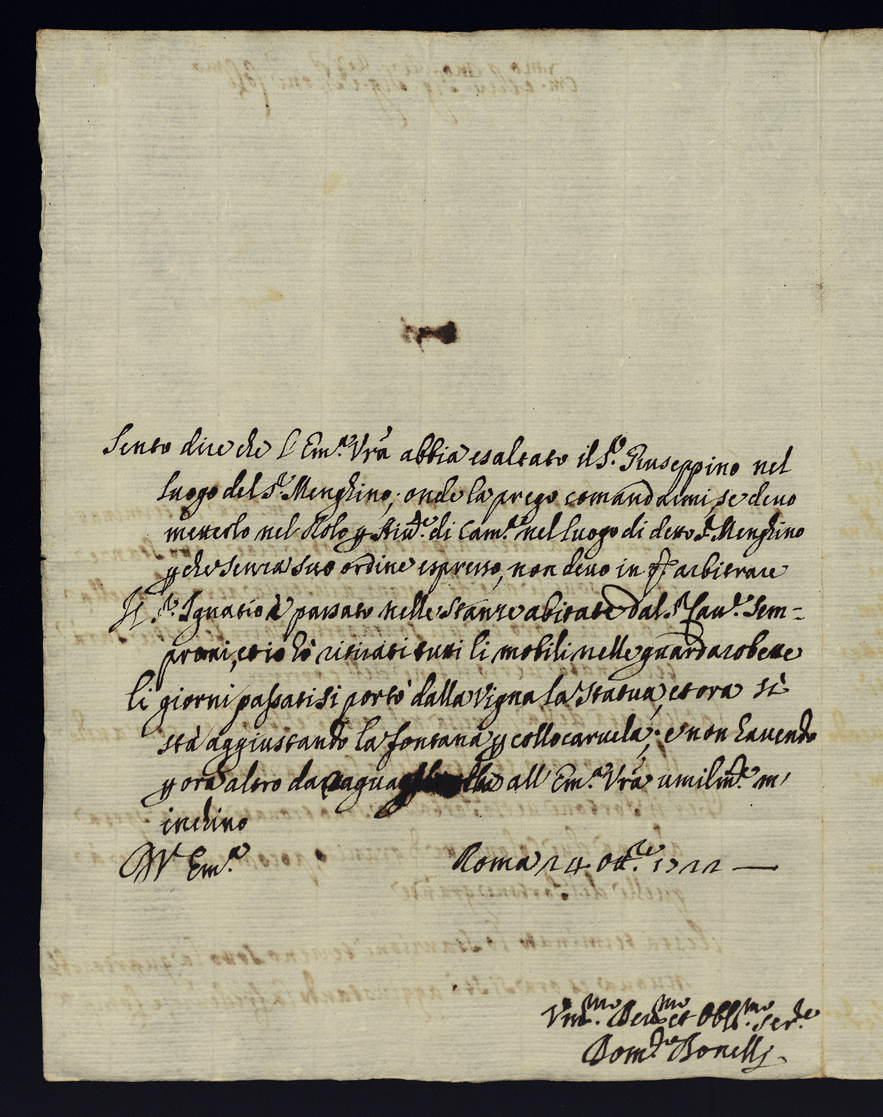 Sento dire che l'Em.ª Vrã abbia esaltato il S.r Giuseppino nel
luogo del S.r Menghino; onde la prego comandarmi, se devo
metterlo nel Rolo p Aiut.e di Cam.ra nel luogo di detto S.r Menghino
p che senza suo ordine espresso, non devo in ciò arbitrare
Il S.r Ignatio è passato nelle stanze abitate dal S.r Cau.r Sem-
proni, et io hò ritirati tutti li mobili nelle guardarobette
li giorni passati si portò dalla vigna la statua, et ora si
stà aggiustando la fontana p collocarvela; e non havendo
p ora altro da raguagliarla all'Em.ª Vrã umilm.te m'
inchino
Di V. Em.ª Roma 24 Ott.re 1722 —
Vm.mo Deu.mo et Obbl.mo Ser.re
Dom.co Bonelli